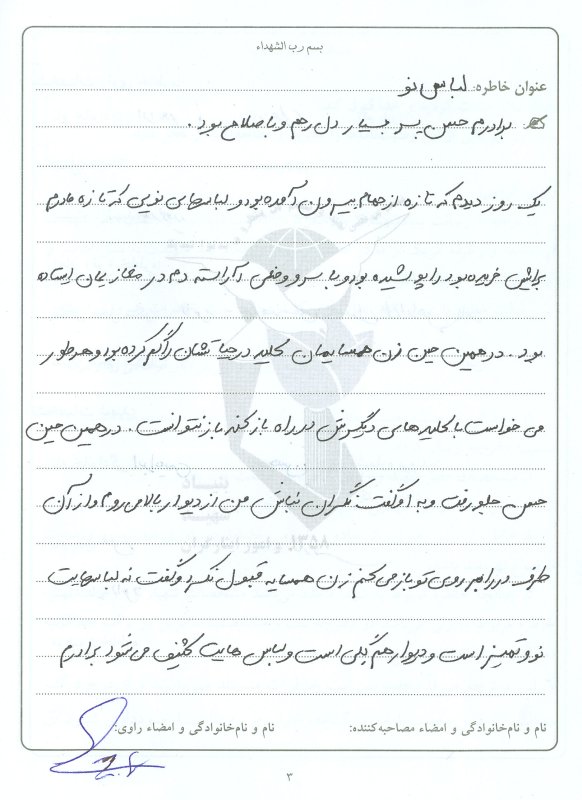 بسم رب الشهداء
عنوان خاطره: لباس نو
برادرم حسن پسر بسیار دل رحم و باصلاح بود.
یک روز دیدم که تازه از حمام بیرون آمده بود و لباسهای نویی که تازه مادرم
برایش خریده بود را پوشیده بود و با سر و وضعی آراسته دم در مغازیمان ایستاده
بود. در همین حین زن همسایمان کلید در حیاتشان را گم کرده بود و هر طور
می خواست با کلیدهای دیگرش در راه باز کند باز نتوانست. در همین حین
حسن جلو رفت و به او گفت نگران نباش من از دیوار بالا می روم و از آن
طرف در را بر روی تو باز می کنم زن همسایه قبول نکرد و گفت نه لباسهایت
نو و تمیز است و دیوار هم گلی است و لباس هایت کثیف می شود برادرم
نام و نام‌خانوادگی و امضاء مصاحبه‌کننده: نام و نام‌خانوادگی و امضاء راوی:
۳